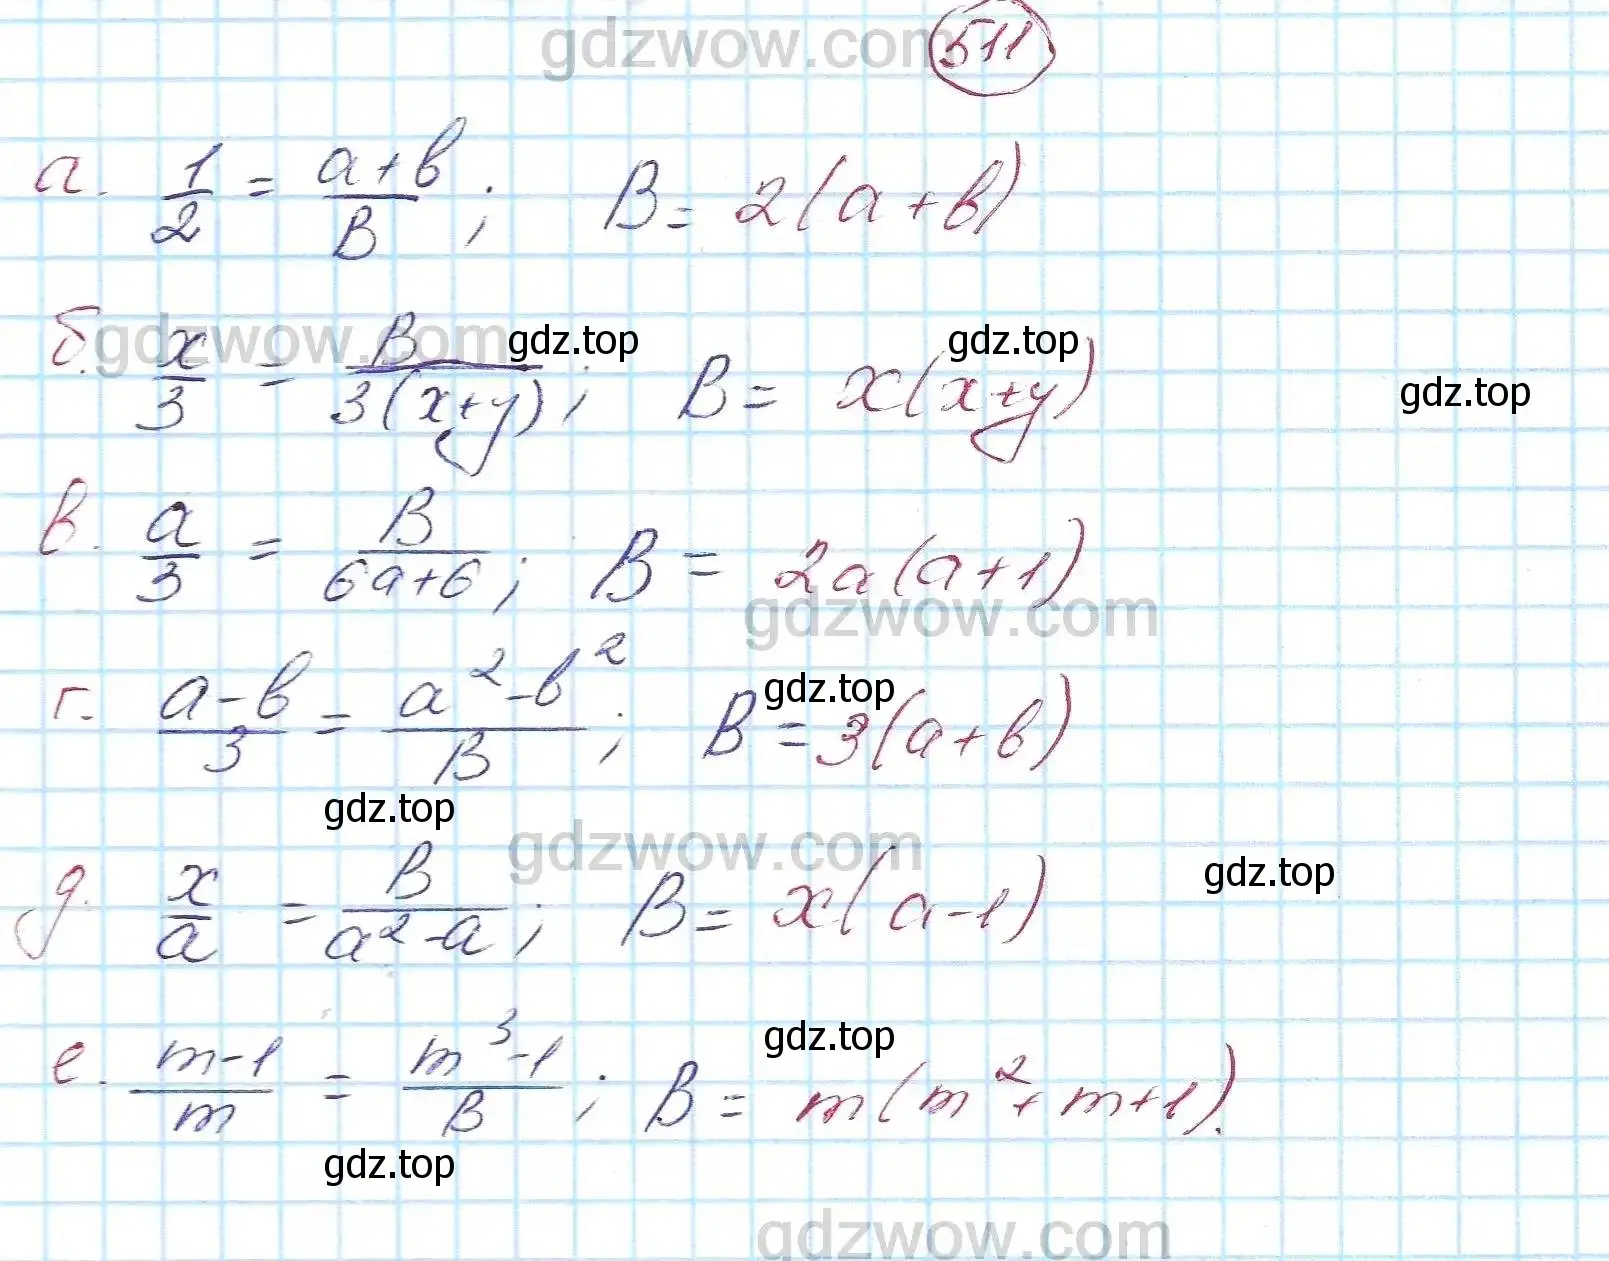 gdzwow.com 511
а. 1/2 = a+b/B; B = 2(a+b)
б. x/3 = B/3(x+y); B = x(x+y)
gdzwow.com gdz.top gdz.top gdz.top
в. a/3 = B/6a+6; B = 2a(a+1)
gdzwow.com
г. a-b/3 = a²-b²/B; B = 3(a+b)
gdz.top
gdz.top
gdzwow.com
д. x/a = B/a²-a; B = x(a-1)
gdz.top
е. m-1/m = m³-1/B; B = m(m²+m+1).
gdz.top
gdz.top
gdzwow.com